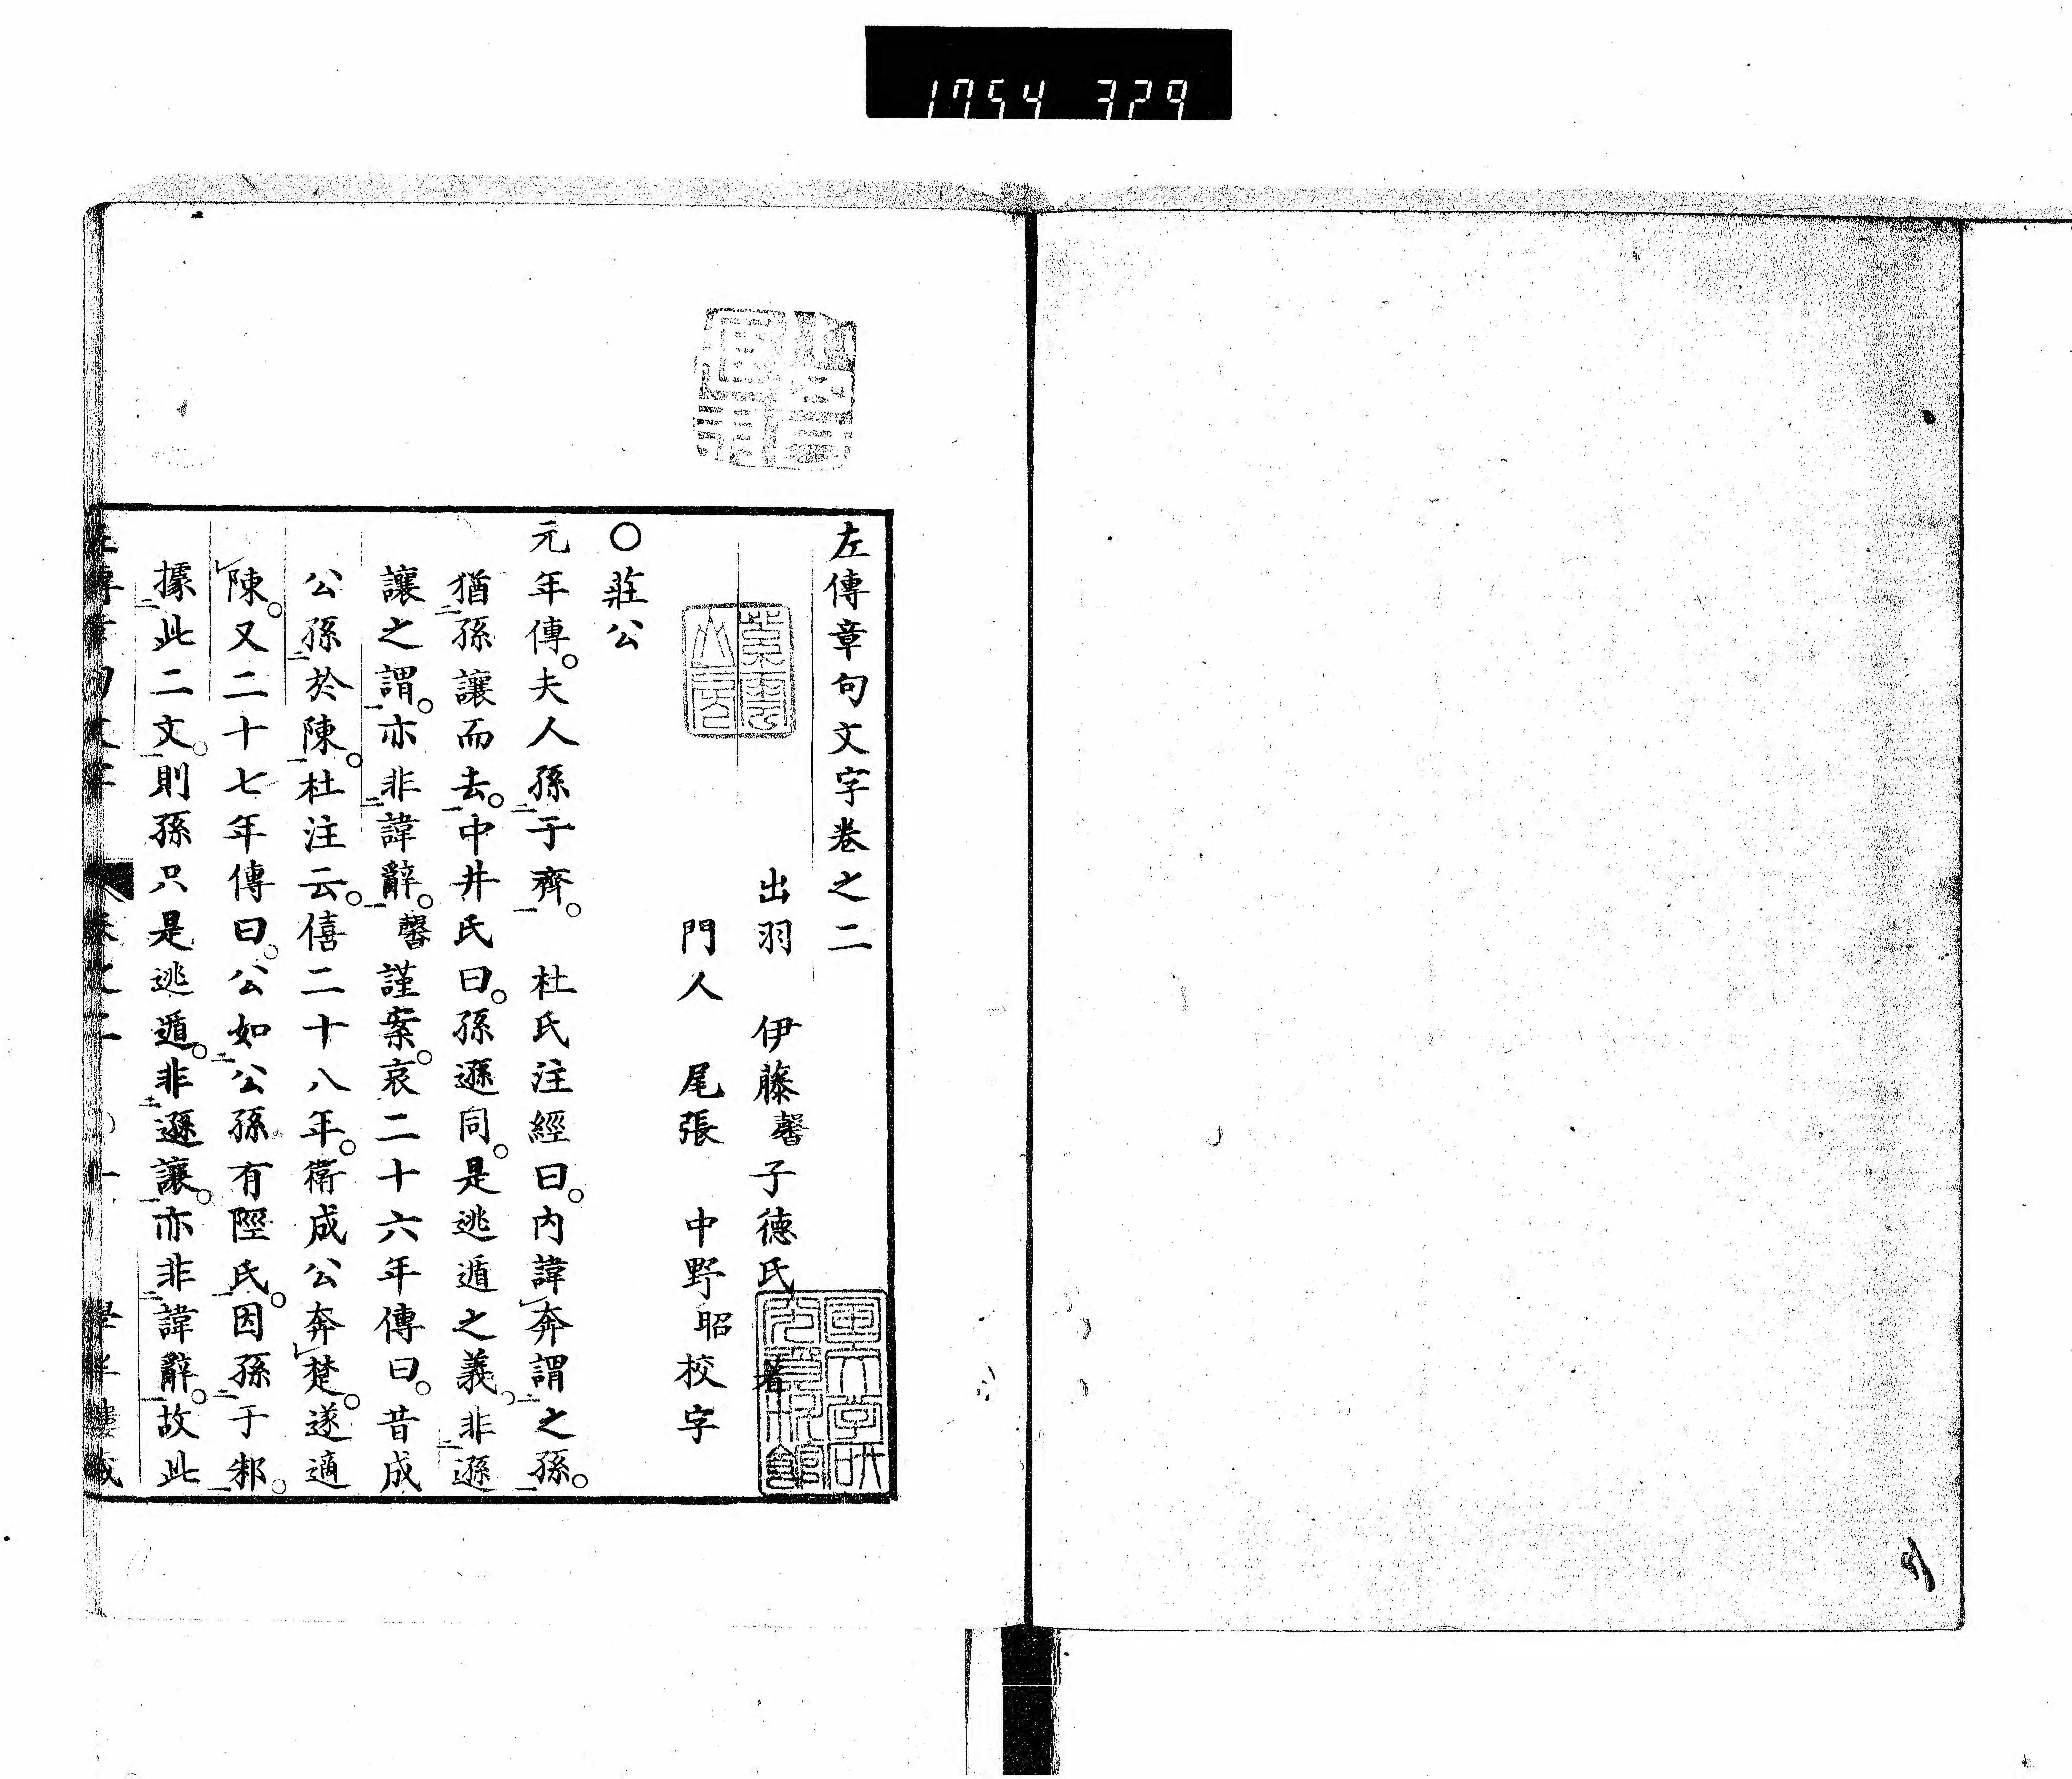 1754 329
左傳章句文字卷之二
出羽 伊藤馨子德氏 著
門人 尾張 中野昭校字
〇莊公
元年傳。夫人孫二于齊一。 杜氏注經曰。内諱レ奔謂二之孫一。
猶二孫讓而去一。中井氏曰。孫遜同。是逃遁之義。非二遜
讓之謂一。亦非二諱辭一。馨謹案。哀二十六年傳曰。昔成
公孫二於陳一。杜注云。僖二十八年。衛成公奔レ楚。遂適
レ陳。又二十七年傳曰。公如二公孫有陘氏一。因孫二于邾一。
據二此二文一。則孫只是逃遁。非二遜讓一。亦非二諱辭一。故此